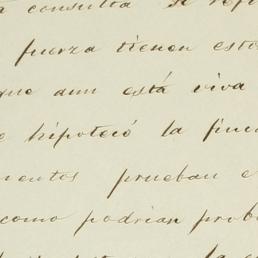 consulta se refi
fuerza tienen esto
que aun está viva
e hipotecó la finc
mentos prueban e
como podrian prob